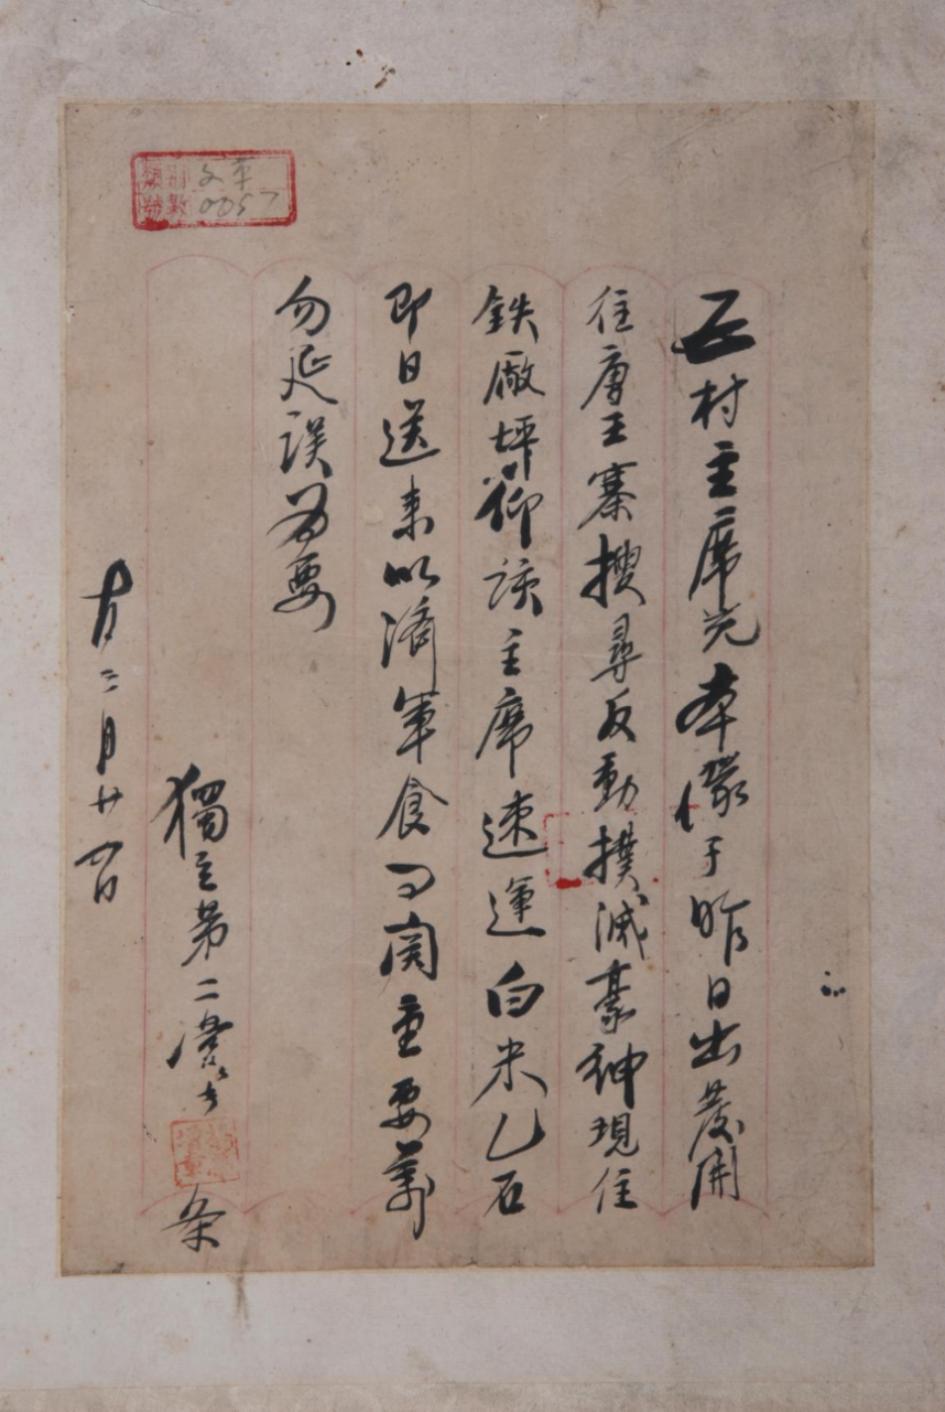 五村主席先本隊于昨日出發開
往唐王寨搜尋反動撲滅豪紳現住
鉄廠坪仰該主席速運白米乙石
即日送来以濟軍食事関重要萬
勿延誤為要
獨立第二 条
古二月廿四日
文革
0057